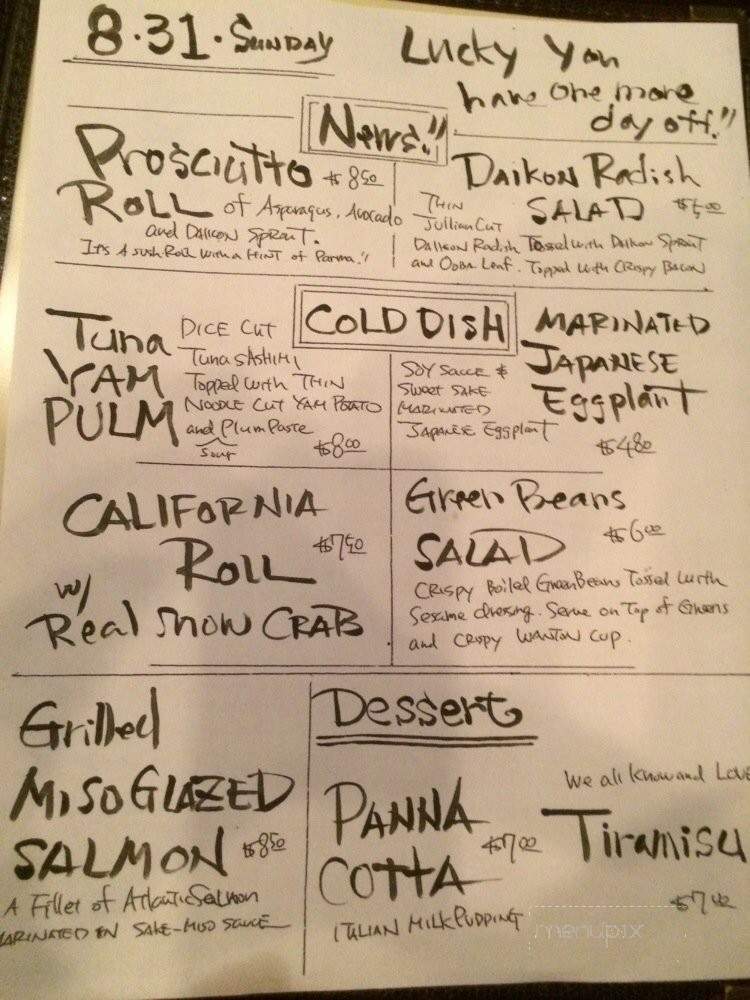 8.31.Sunday
Lucky You
have one more
day off.!!
News!!
Prosciutto $8.50
Roll of Asparagus, Avocado
and Daikon Sprout.
It's A sushi Roll with a HINT of Parma!!
Daikon Radish
SALAD $5.00
THIN
Jullian CUT
Daikon Radish Tossed with Daikon Sprout
and OOBA Leaf. Topped with CRispy BACON
COLD DISH
Tuna
YAM
PULM
DICE CUT
Tuna SASHIMI
Topped with THIN
NOODLE CUT YAM POTATO
and Plum Paste
sour
$8.00
MARINATED
JAPANESE
Eggplant
SOY SAUCE &
Sweet SAKE
MARINATED
JAPANESE Eggplant
$4.80
CALIFORNIA
ROLL $7.50
w/
Real Snow CRAB
Green Beans
SALAD $6.00
CRispy Boiled Green Beans Tossed with
Sesame dressing. Serve on Top of Greens
and CRISPY WANTON CUP.
Grilled
MISO GLAZED
SALMON $8.50
A Fillet of Atlantic Salmon
MARINATED IN SAKE-MISO SAUCE
Dessert
PANNA
COTTA $7.00
ITALIAN MILK PUDDING
We all know and Love
Tiramisu
menupix